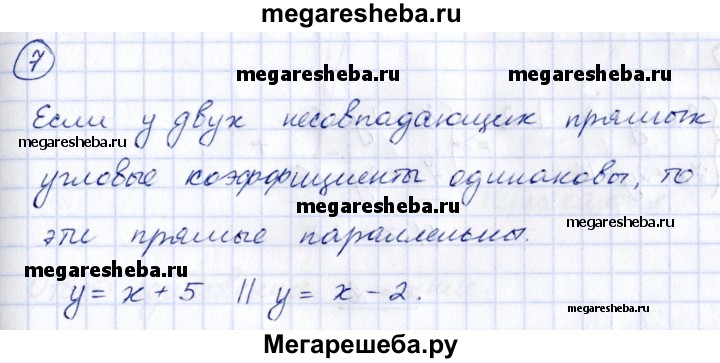 megaresheba.ru
7
megaresheba.ru
megaresheba.ru
Если у двух несовпадающих прямых
megaresheba.ru
угловые коэффициенты одинаковы, то
megaresheba.ru
megaresheba.ru
эти прямые параллельны.
megaresheba.ru
y = x + 5 || y = x - 2.
Мегарешеба.ру